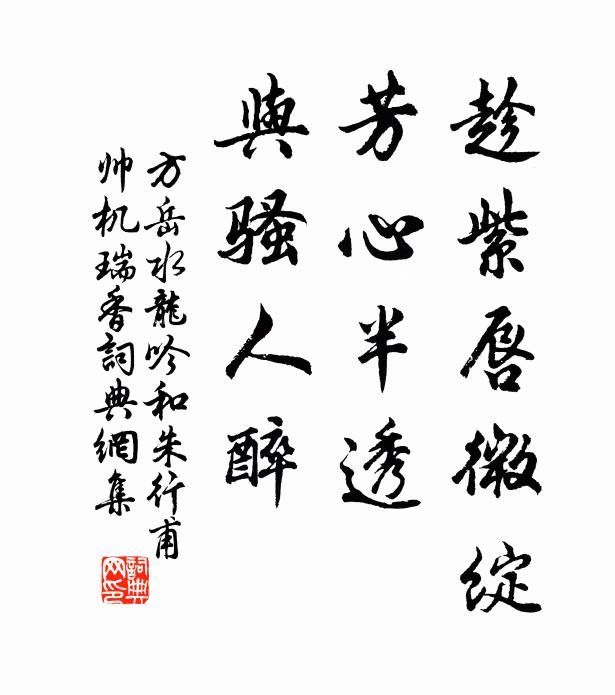 趁紫唇微綻
芳心半透
與骚人醉
方岳水龍吟和朱行甫
帅机瑞香詞典網集
詞典
网印